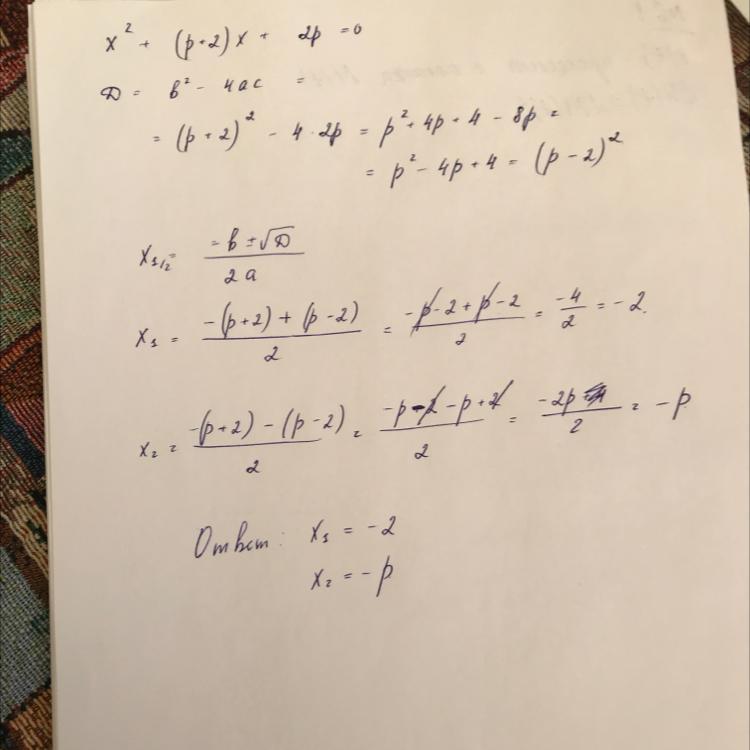 x² + (p+2)x + 2p = 0
D = b² - 4ac =
= (p+2)² - 4·2p = p² + 4p + 4 - 8p =
= p² - 4p + 4 = (p-2)²
x₁/₂ = (-b ± √D) / 2a
x₁ = (-(p+2) + (p-2)) / 2 = (-p-2+p-2) / 2 = -4/2 = -2.
x₂ = (-(p+2) - (p-2)) / 2 = (-p-2-p+2) / 2 = -2p/2 = -p
Ответ: x₁ = -2
x₂ = -p